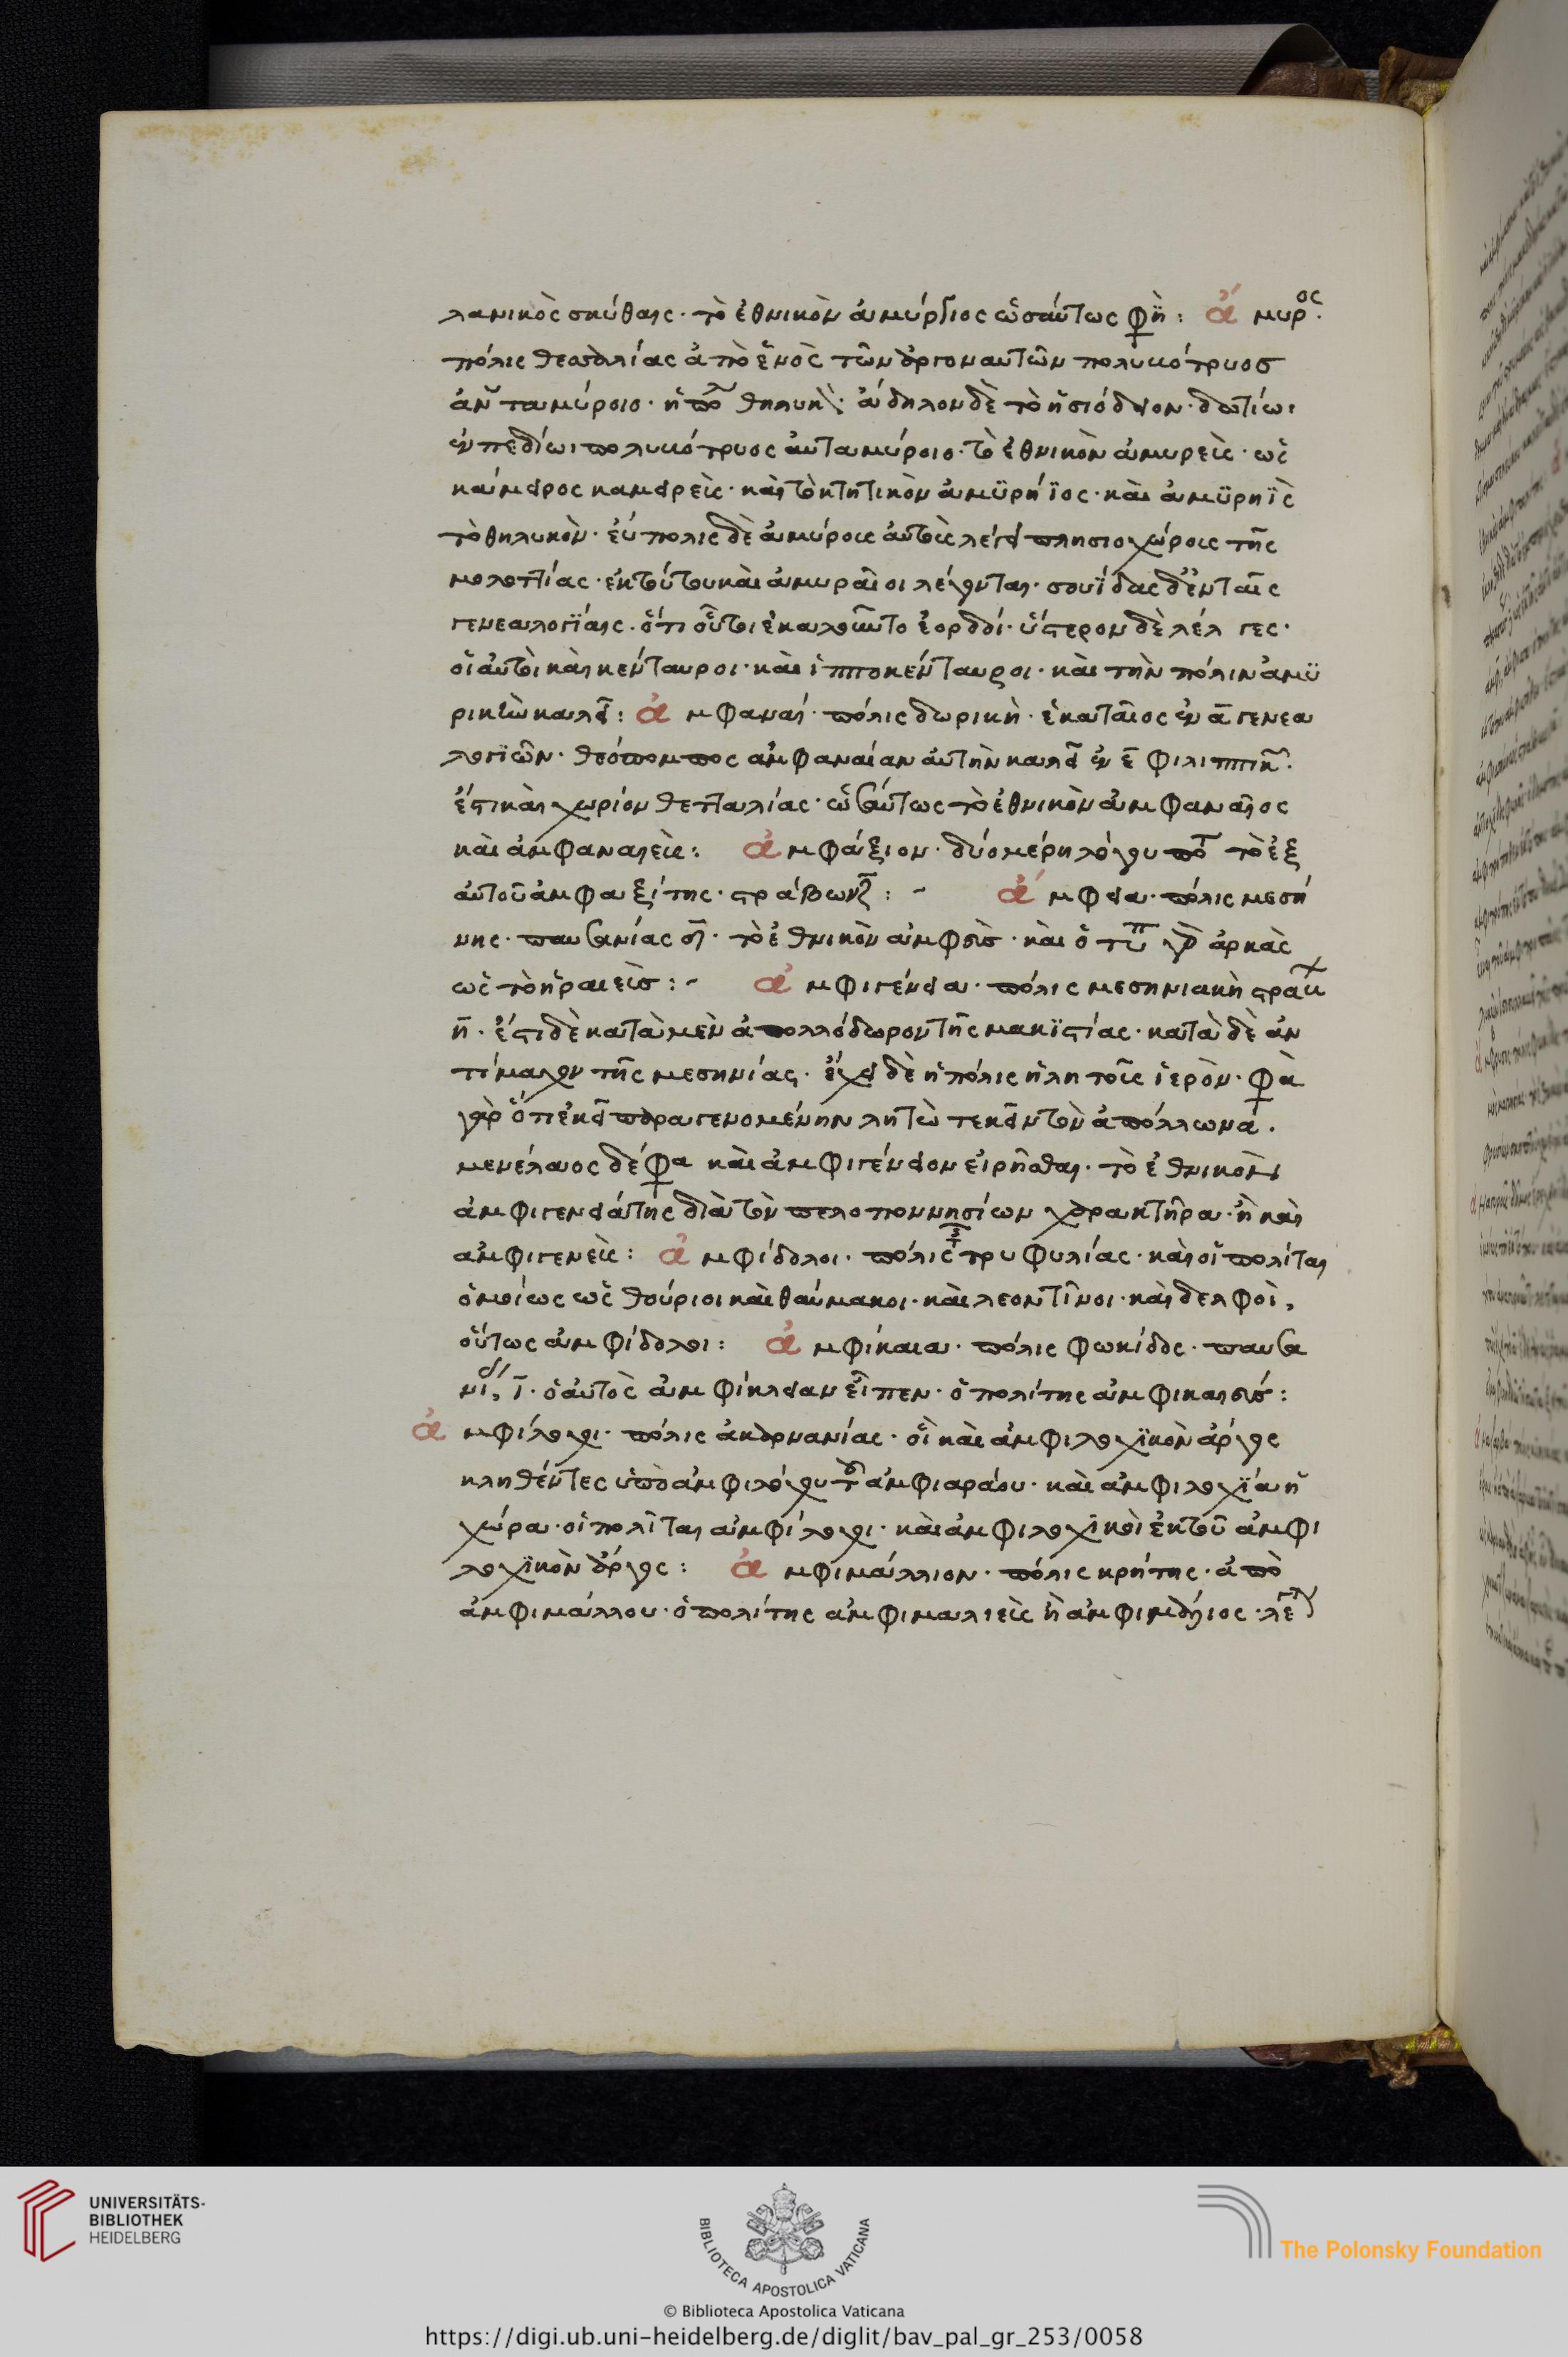 λανικὸς σκύθαις· τὸ ἐθνικὸν ἀμύργιος ὡσαύτως φη: ἄμυρος·
πόλις θεσσαλίας ἀπὸ ἑνὸς τῶν ἀργοναυτῶν πολυκότρυοσ
ἀντ᾽ ἀμύροιο· θηλυκὴ· ἄδηλον δὲ τὸ ἡσιόδειον· δωτίωι
ἐν πεδίωι πολυκότρυος ἄντ᾽ ἀμύροιο· τὸ ἐθνικὸν ἀμυρεὶς· ὡς
κάμειρος καμειρεὶς· καὶ τὸ κτητικὸν ἀμϋρήϊος· καὶ ἀμϋρηῒς
τὸ θηλυκὸν· εὔπολις δὲ ἀμύροις αὐτοὶς λέγει πλησιοχώροις τῆς
μολοττίας· ἐκ τούτου καὶ ἀμυραῖοι λέγονται· σουΐδας δ᾽ ἐν ταῖς
γενεαλογίαις· ὅτι οὗτοι ἐκαλοῦντο ἐορδοί· ὕστερον δὲ λέλ γες·
οἱ αὐτοὶ καὶ κένταυροι· καὶ ἱπποκένταυροι· καὶ τὴν πόλιν ἀμϋ
ρικὼ καλεῖ: ἀμφαναί· πόλις δωρικὴ· ἑκαταῖος ἐν α γενεα
λογϊῶν· θεόπομπος ἀμφαναίαν αὐτὴν καλεῖ ἐν ε φιλιππικ·
ἔστι καὶ χωρίον θετταλίας· ὡσαύτως τὸ ἐθνικὸν ἀμφαναῖος
καὶ ἀμφαναιεὶς: ἀμφάξιον· δύο μέρη λόγου τὸ ἐξ
αὐτοῦ ἀμφαξίτης· στράβων ζ: - ἄμφεια· πόλις μεσή
νης· παυσανίας· τὸ ἐθνικὸν ἀμφεὶσ· καὶ ὁ ἀρκὰς
ὡς τὸ ἡραιεὶσ: - ἀμφιγένεια· πόλις μεσηνιακὴ στρα
η· ἔστι δὲ κατὰ μὲν ἀπολλόδωρον τῆς μακϊστίας· κατὰ δὲ ἀν
τίμαχον τῆς μεσηνίας· ἔχει δὲ ἡ πόλις ἡ λητοῖς ἱερὸν· φα
γὰρ ὅτι ἐκεῖ παραγενομένην λητὼ τεκεῖν τὸν ἀπόλλωνα.
μενέλαος δέ φα καὶ ἀμφιγένειον εἰρῆσθαι· τὸ ἐθνικὸν
ἀμφιγενειάτης διὰ τὸν πελοποννησίων χαρακτῆρα· ἢ καὶ
ἀμφιγενεὶς: ἀμφίδολοι· πόλις τρυφυλίας· καὶ οἱ πολίται
ὁμοίως ὡς θούριοι καὶ θαύμακοι· καὶ λεοντῖνοι· καὶ δελφοὶ,
οὕτως ἀμφίδολοι: ἀμφίκαια· πόλις φωκίδος· παυσα
νι, ι· ὁ αὐτὸς ἀμφίκλειαν εἶπεν· ὁ πολίτης ἀμφικαιεύς:
ἀμφίλοχοι· πόλις ἀκαρνανίας· οἳ καὶ ἀμφιλοχϊκὸν ἄργος
κληθέντες ὑπὸ ἀμφιλόχου τοῦ ἀμφιαράου· καὶ ἀμφιλοχϊα ἡ
χώρα· οἱ πολῖται ἀμφίλοχοι· καὶ ἀμφιλοχϊκοὶ ἐκ τοῦ ἀμφι
λοχϊκὸν ἄργος: ἀμφιμάλλιον· πόλις κρήτης· ἀπὸ
ἀμφιμάλλου· ὁ πολίτης ἀμφιμαλιεὶς ἢ ἀμφιμάλιος·
UNIVERSITÄTS-
BIBLIOTHEK
HEIDELBERG
BIBLIOTECA APOSTOLICA VATICANA
The Polonsky Foundation
© Biblioteca Apostolica Vaticana
https://digi.ub.uni-heidelberg.de/diglit/bav_pal_gr_253/0058